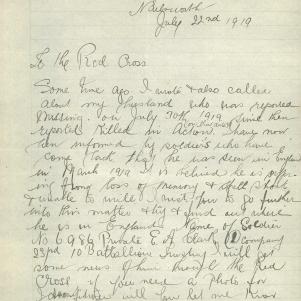 Nailsworth
July 22nd 1919
To the Red Cross
Some time ago I wrote & also called
about my Husband who was reported
Missing on July 30th 1916 since then
reported Killed in Action. I have now
been informed by soldiers who have
come back that he was seen in England
in March 1919 it is believed he is suffer
ing from loss of Memory & Shell Shock
& unable to write. I want you to go further
into this matter & try & find out where
he is in England. Name of Soldier
No 6986 Private E. A. D Company
22nd 10 Battallion trusting I will get
some news of him through the Red
Cross if you need a Photo of
him will you let me know